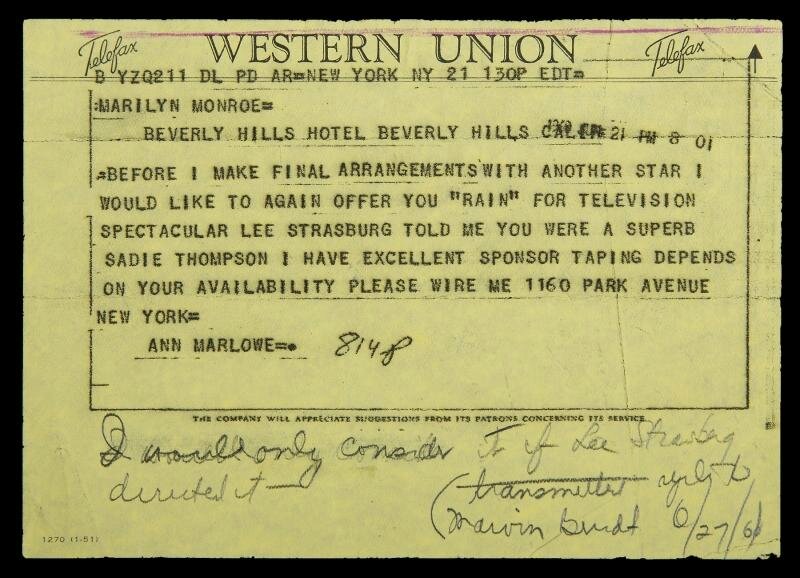 Telefax WESTERN UNION Telefax
B YZQ211 DL PD AR=NEW YORK NY 21 130P EDT=
:MARILYN MONROE=
BEVERLY HILLS HOTEL BEVERLY HILLS CALIF= 21 PM 8 01
=BEFORE I MAKE FINAL ARRANGEMENTS WITH ANOTHER STAR I
WOULD LIKE TO AGAIN OFFER YOU "RAIN" FOR TELEVISION
SPECTACULAR LEE STRASBURG TOLD ME YOU WERE A SUPERB
SADIE THOMPSON I HAVE EXCELLENT SPONSOR TAPING DEPENDS
ON YOUR AVAILABILITY PLEASE WIRE ME 1160 PARK AVENUE
NEW YORK=
ANN MARLOWE=.
814P
THE COMPANY WILL APPRECIATE SUGGESTIONS FROM ITS PATRONS CONCERNING ITS SERVICE
I would only consider it if Lee Strasberg
directed it —
(transmitted
Marvin 6/27/61
1270 (1-51)